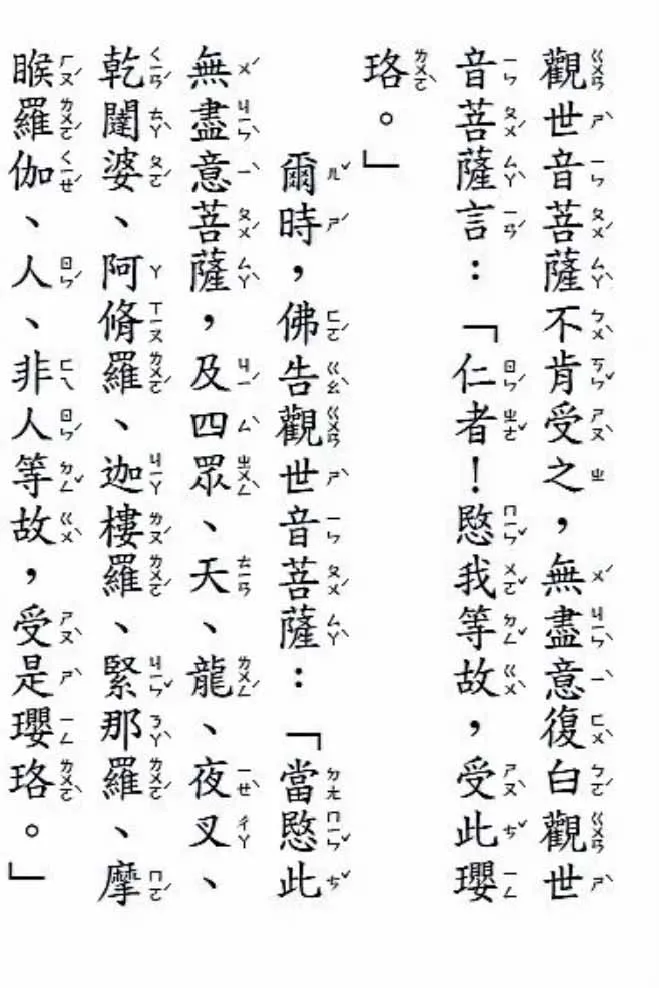 觀世音菩薩不肯受之，無盡意復白觀世
音菩薩言：「仁者！愍我等故，受此瓔
珞。」
爾時，佛告觀世音菩薩：「當愍此
無盡意菩薩，及四眾、天、龍、夜叉、
乾闥婆、阿脩羅、迦樓羅、緊那羅、摩
睺羅伽、人、非人等故，受是瓔珞。」